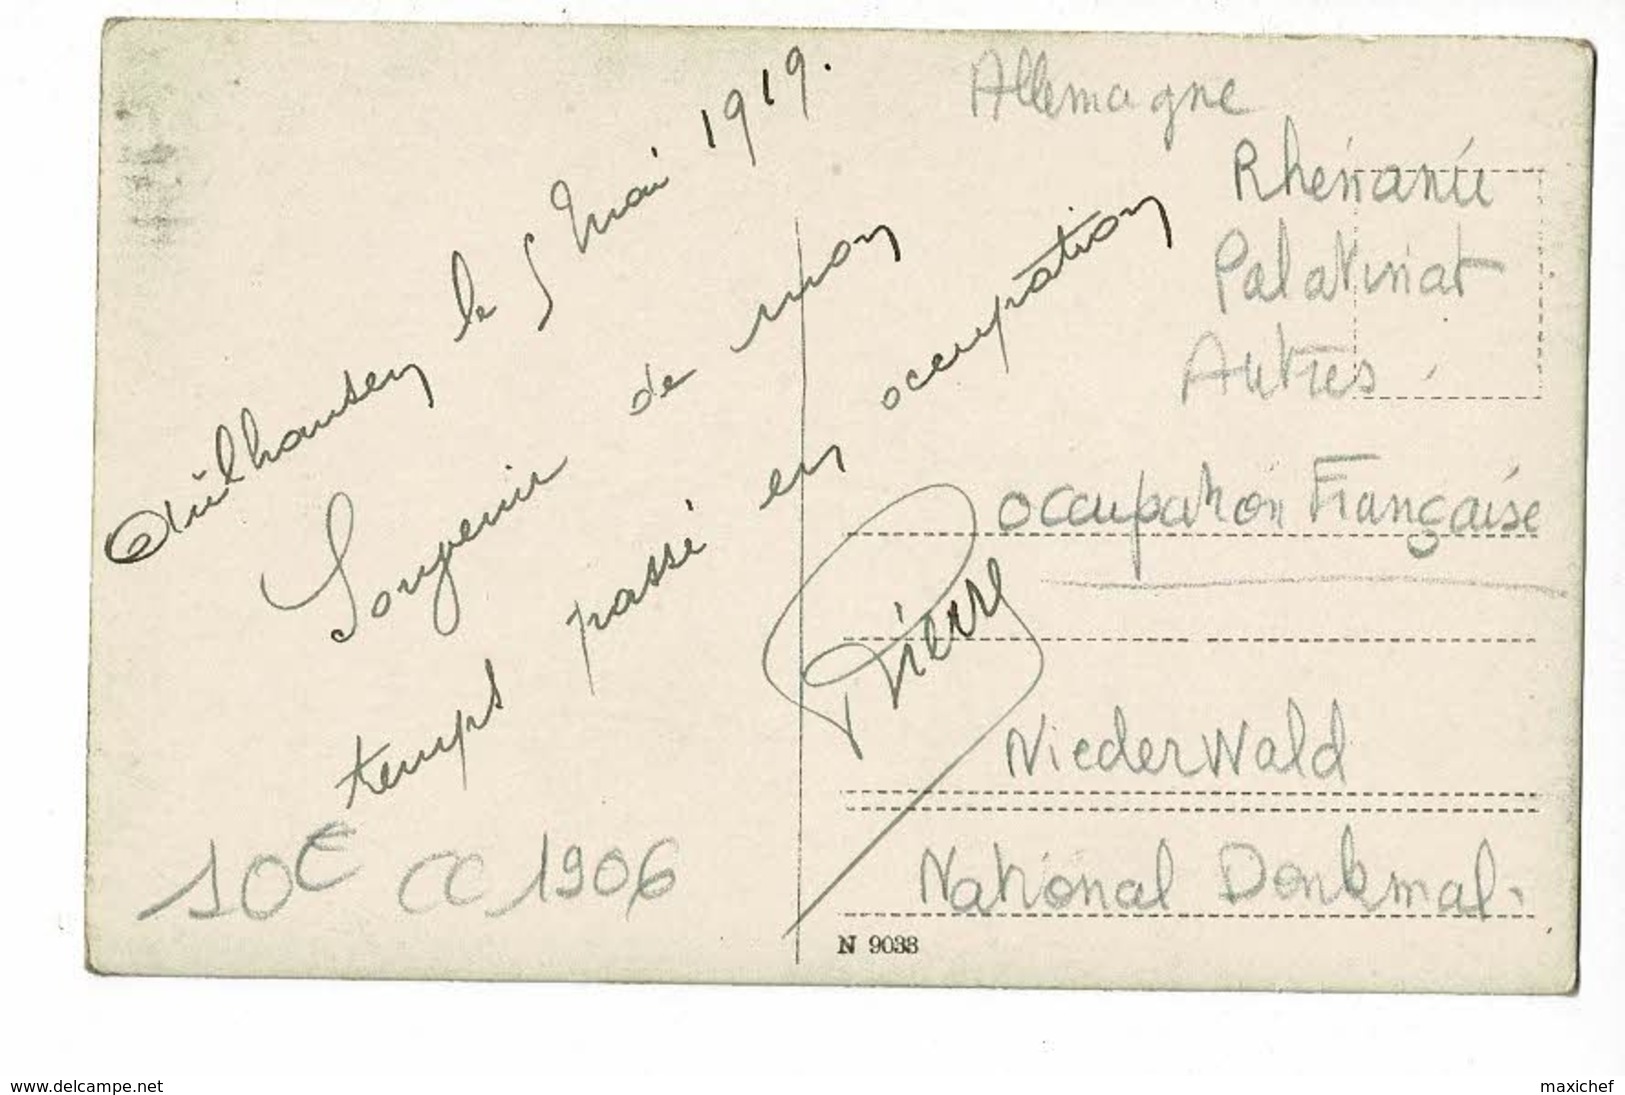 Aülhausen le 5 Mai 1919.
Souvenir de mon
temps passé en occupation
Pierre
Allemagne
Rhénanie
Palatinat
Autres
occupation Française
NiederWald
National Denkmal.
10€ CC 1906
N 9033
www.delcampe.net
maxichef